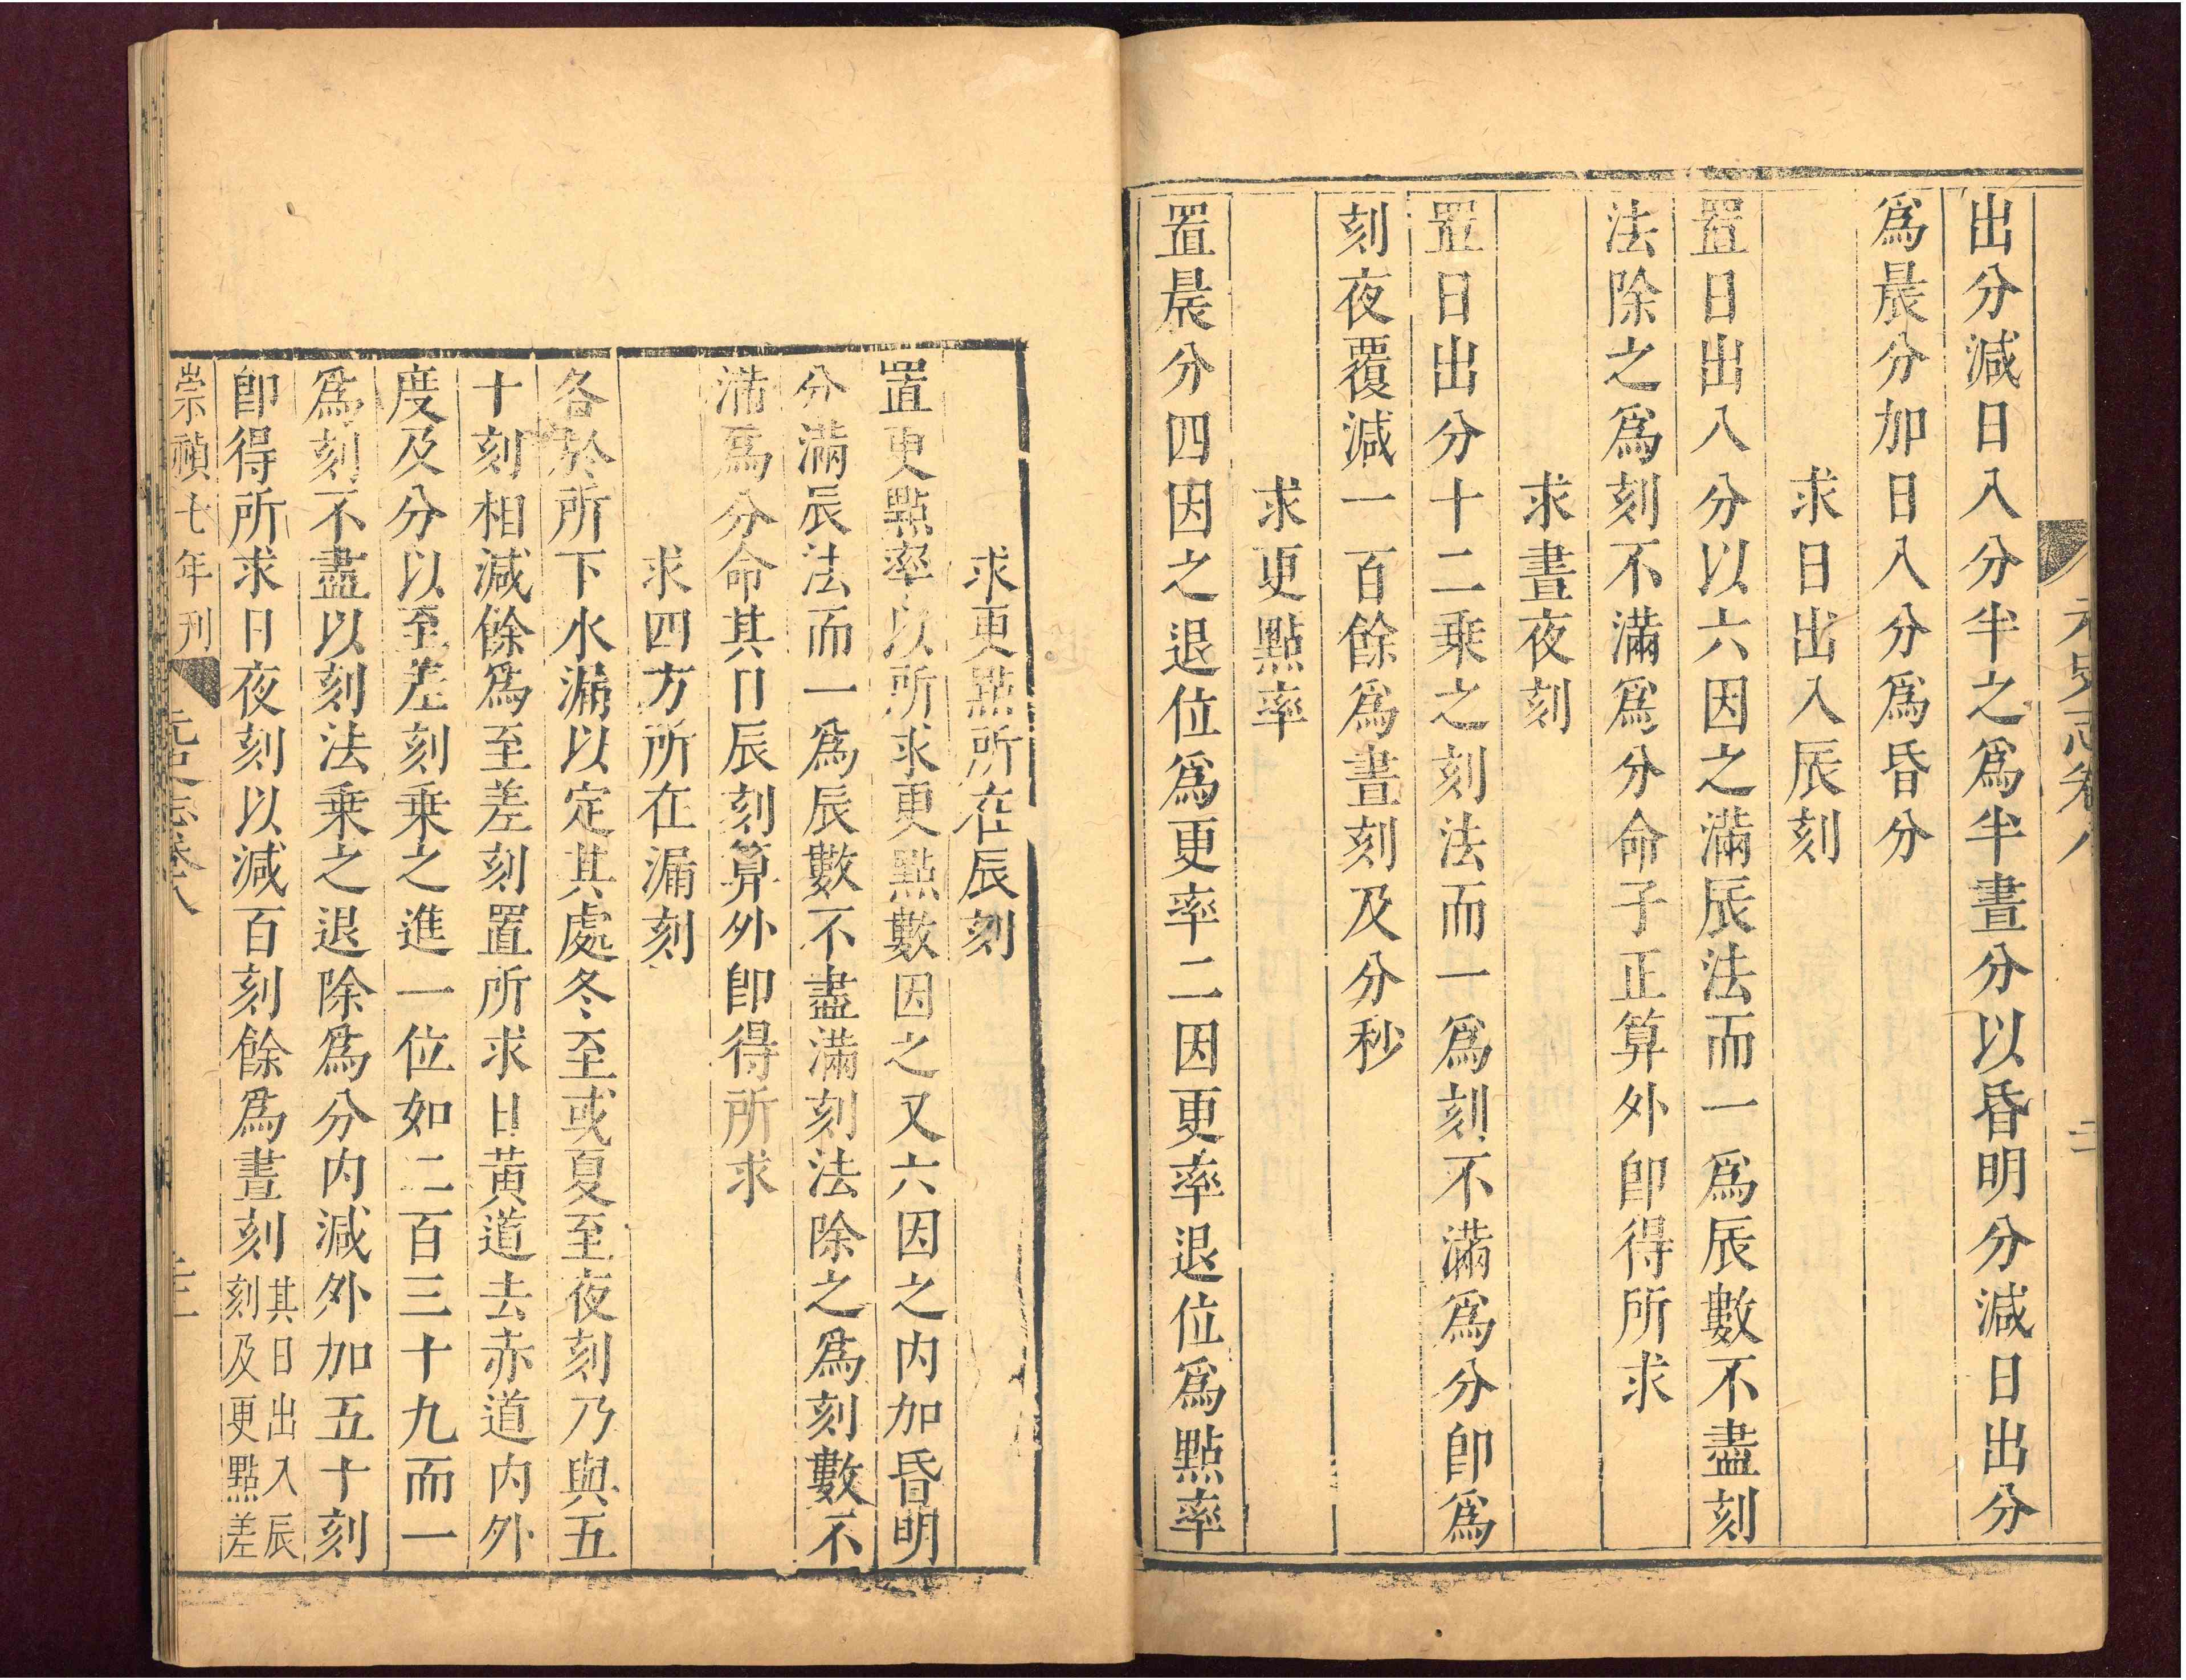 元史志卷八 二
出分減日入分半之爲半晝分以昏明分減日出分
爲晨分加日入分爲昏分
求日出入辰刻
置日出入分以六因之滿辰法而一爲辰數不盡刻
法除之爲刻不滿爲分命子正算外卽得所求
求晝夜刻
置日出分十二乗之刻法而一爲刻不滿爲分卽爲
刻夜覆減一百餘爲晝刻及分秒
求更點率
置晨分四因之退位爲更率二因更率退位爲點率
求更點所在辰刻
置更點率以所求更點數因之又六因之内加昏明
分滿辰法而一爲辰數不盡滿刻法除之爲刻數不
滿爲分命其日辰刻算外卽得所求
求四方所在漏刻
各於所下水漏以定其處冬至或夏至夜刻乃與五
十刻相減餘爲至差刻置所求日黄道去赤道内外
度及分以至差刻乗之進一位如二百三十九而一
爲刻不盡以刻法乗之退除爲分内減外加五十刻
卽得所求日夜刻以減百刻餘爲晝刻
其日出入辰
刻及更點差
崇禎七年刊 元史志卷八